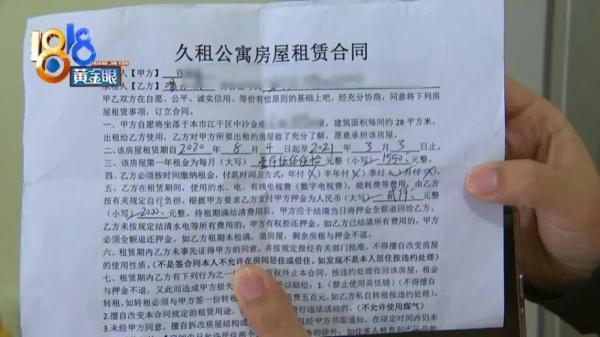 1818
黄金眼
久租公寓房屋租赁合同
人【甲方】
承租人【乙方】
甲乙双方在自愿、公平、诚实信用、等价有偿原则的基础上吧，经充分协商，同意将下列房
屋租赁事项，订立合同。
一、甲方自愿将坐落于本市江干区中沙金座 建筑面积每间约 28 平方米，
出租给乙方使用，乙方对甲方所要出租的房屋做了充分了解，愿意承担该房屋。
二、该房屋租期自 2020 年 8 月 4 日起至 2021 年 3 月 3 日。
三、该房屋第一年租金为每月（大写） 元整（小写）1550 元整。
四、乙方必须按时间缴纳租金，付款时间及方式：年付 半年付 季付 月付
五、乙方在租赁期间，使用的水、电、有线电视费（数字电视费），能耗费等费用，由乙方
按有关规定自行负担。根据甲方要求乙方支付甲方押金为人民币（大写） 元整
（小写）2000 元整。待租期满结清费用后，甲方应于结清当日将押金全额退回给乙方，
乙方未按规定结清水电等所有费用的，甲方有权拒还押金。如乙方已结清所有费用的，甲方
必须全额退还押金。如乙方租期未租满，退房屋，剩余房租与押金不退。
六、租期内乙方未事先征得甲方的同意，并按规定报经有关部门批准，不得擅自改变房屋
的使用性质。（不是签合同本人不允许在房间居住或借住，如发现不是本人居住按违约处理）
七、租赁期内乙方有下列行为之一 有权终止本合同，按违约处理收回该房屋，租金
与押金不退，又此而造成甲方损失 以赔偿；1.（禁止使用高低铺）（不得擅自
转租，如转租必须与甲方签一份转 费五百元，如乙方私自转租按违约处理）。
2.擅自改变本合同规定的租用用途， 进行违法活动的。（不允许使用煤气）
3.未经甲方同意，擅自拆改房屋结构或 经甲方书面通知，在限定时间内仍未